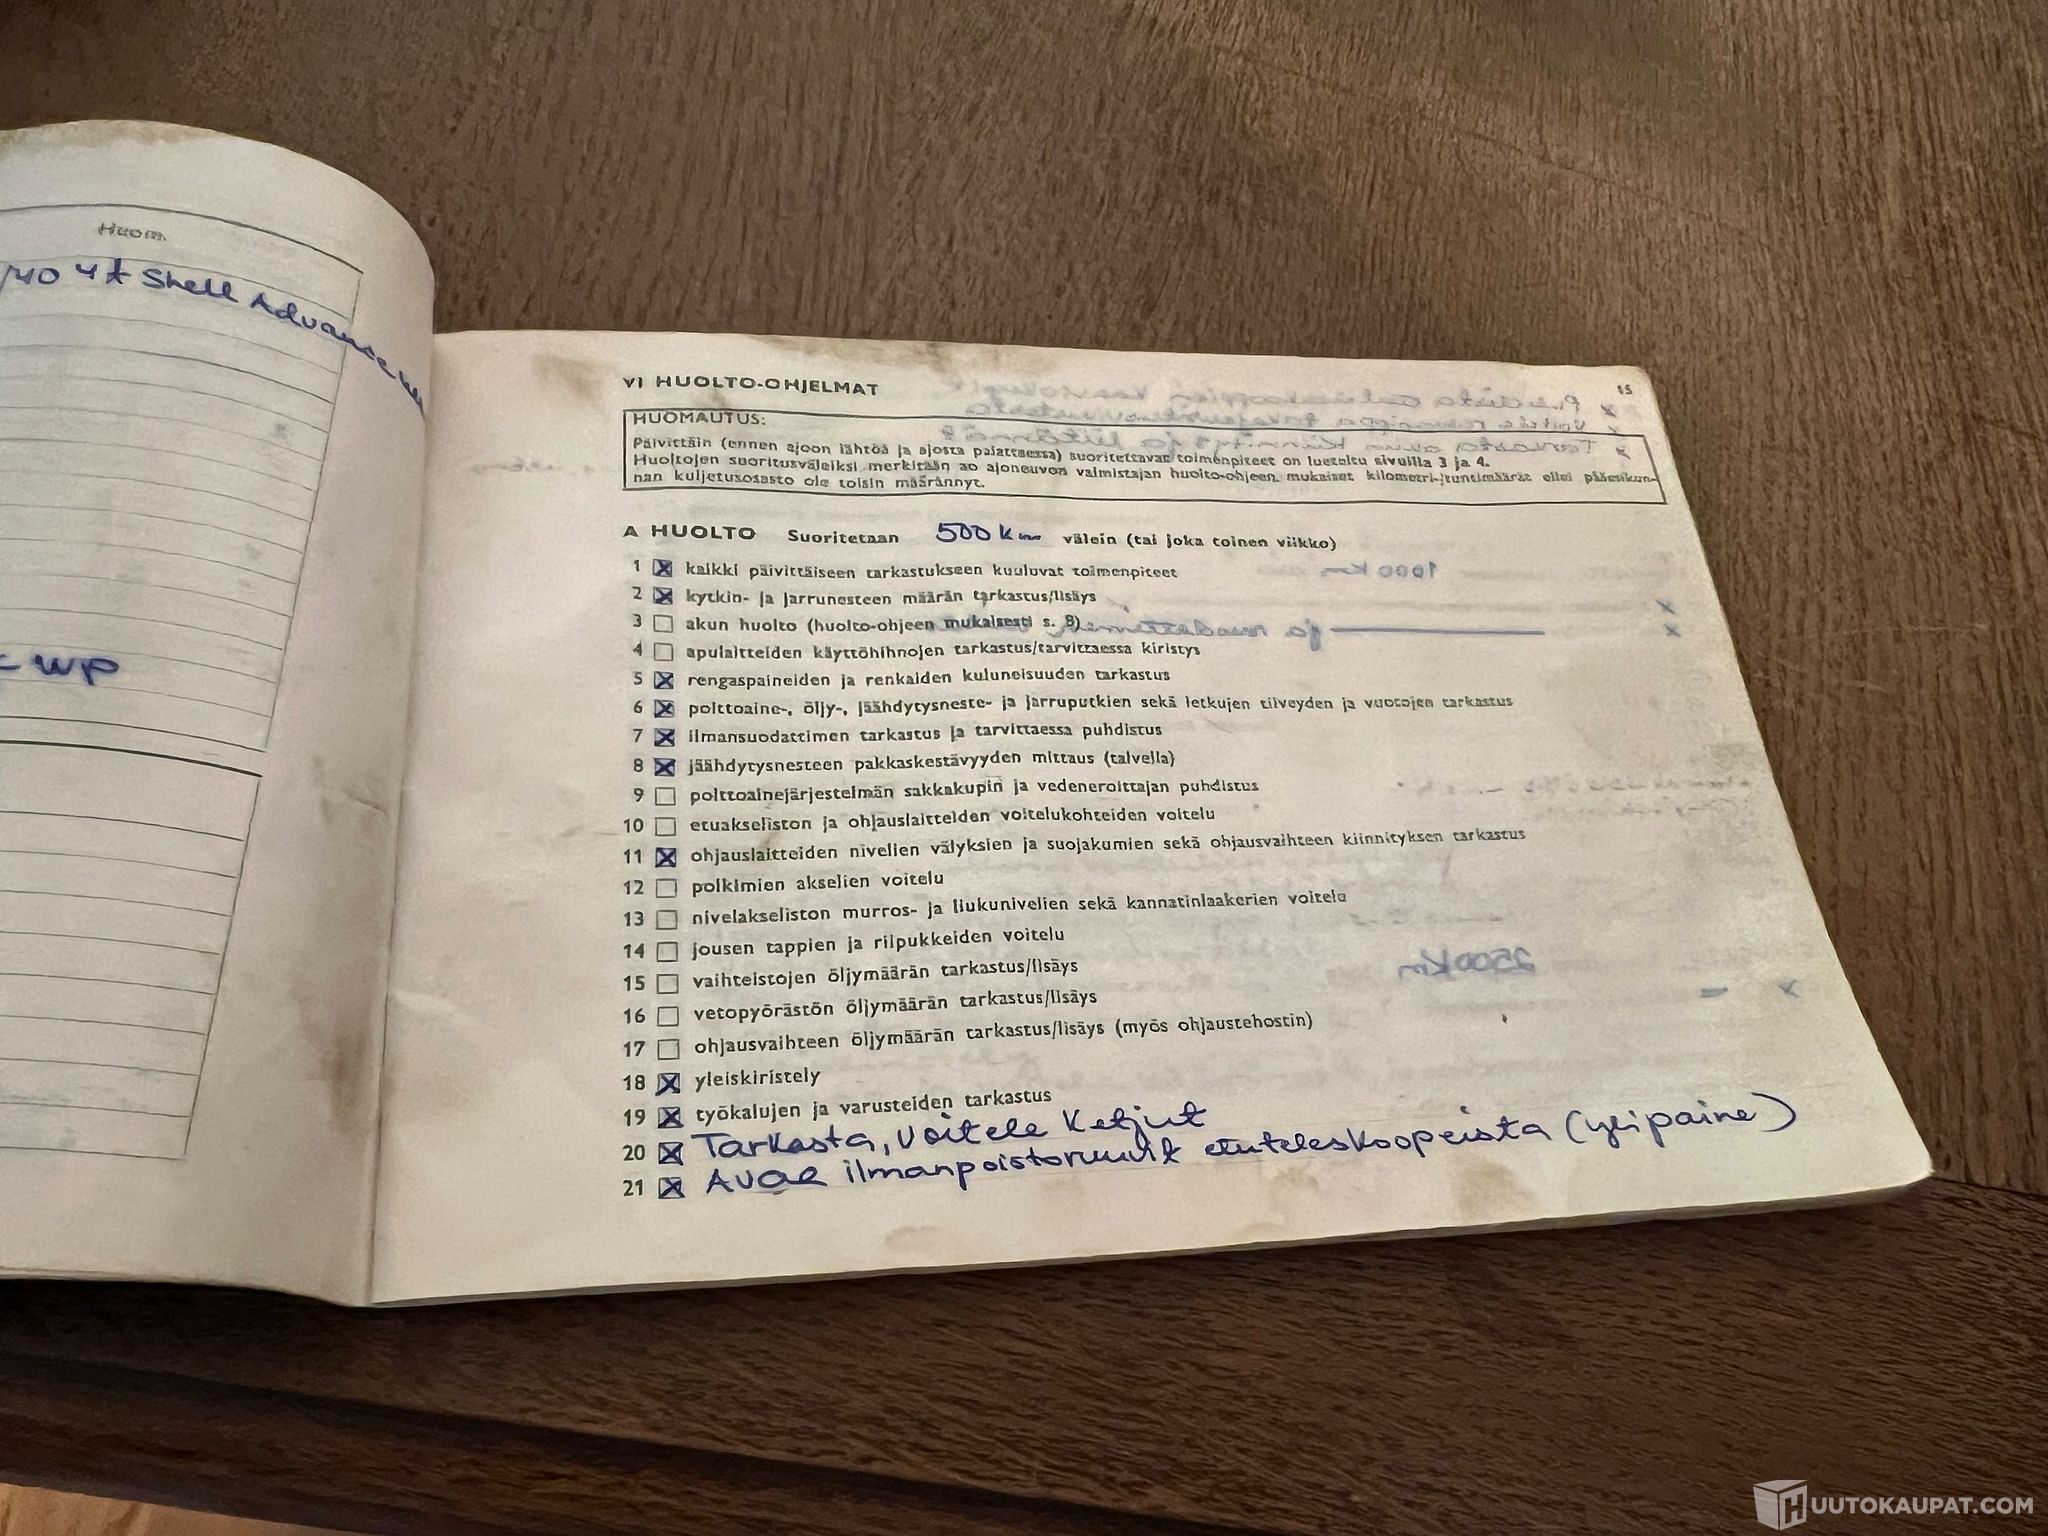 Huom.
/40 4t Shell Advance
WP
VI HUOLTO-OHJELMAT
15
HUOMAUTUS:
Päivittäin (ennen ajoon lähtöä ja ajosta palattaessa) suoritettavat toimenpiteet on lueteltu sivuilla 3 ja 4.
Huoltojen suoritusväleiksi merkitään ao ajoneuvon valmistajan huolto-ohjeen mukaiset kilometri-/tuntimäärät ellei pääesikun-
nan kuljetusosasto ole toisin määrännyt.
A HUOLTO Suoritetaan 500 km välein (tai joka toinen viikko)
1 kaikki päivittäiseen tarkastukseen kuuluvat toimenpiteet
2 kytkin- ja jarrunesteen määrän tarkastus/lisäys
3 akun huolto (huolto-ohjeen mukaisesti s. 8)
4 apulaitteiden käyttöhihnojen tarkastus/tarvittaessa kiristys
5 rengaspaineiden ja renkaiden kuluneisuuden tarkastus
6 polttoaine-, öljy-, jäähdytysneste- ja jarruputkien sekä letkujen tiiveyden ja vuotojen tarkastus
7 ilmansuodattimen tarkastus ja tarvittaessa puhdistus
8 jäähdytysnesteen pakkaskestävyyden mittaus (talvella)
9 polttoainejärjestelmän sakkakupin ja vedeneroittajan puhdistus
10 etuakseliston ja ohjauslaitteiden voitelukohteiden voitelu
11 ohjauslaitteiden nivelien välyksien ja suojakumien sekä ohjausvaihteen kiinnityksen tarkastus
12 polkimien akselien voitelu
13 nivelakseliston murros- ja liukunivelien sekä kannatinlaakerien voitelu
14 jousen tappien ja riipukkeiden voitelu
15 vaihteistojen öljymäärän tarkastus/lisäys
16 vetopyörästön öljymäärän tarkastus/lisäys
17 ohjausvaihteen öljymäärän tarkastus/lisäys (myös ohjaustehostin)
18 yleiskiristely
19 työkalujen ja varusteiden tarkastus
20 Tarkasta, voitele Ketjut
21 Avaa ilmanpoistoruuvit etuteleskoopeista (ylipaine)
HUUTOKAUPAT.COM